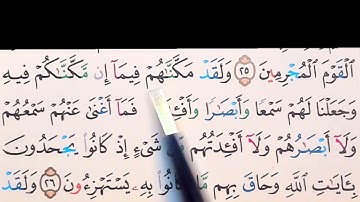 ٱلْقَوْمَ ٱلْمُجْرِمِينَ ٢٥ وَلَقَدْ مَكَّنَّٰهُمْ فِيمَآ إِن مَّكَّنَّٰكُمْ فِيهِ
وَجَعَلْنَا لَهُمْ سَمْعًا وَأَبْصَٰرًا فَمَآ أَغْنَىٰ عَنْهُمْ سَمْعُهُمْ
وَلَآ أَبْصَٰرُهُمْ وَلَآ أَفْـِٔدَتُهُم مِّن شَىْءٍ إِذْ كَانُوا۟ يَجْحَدُونَ
بِـَٔايَٰتِ ٱللَّهِ وَحَاقَ بِهِم مَّا كَانُوا۟ بِهِۦ يَسْتَهْزِءُونَ ٢٦ وَلَقَدْ